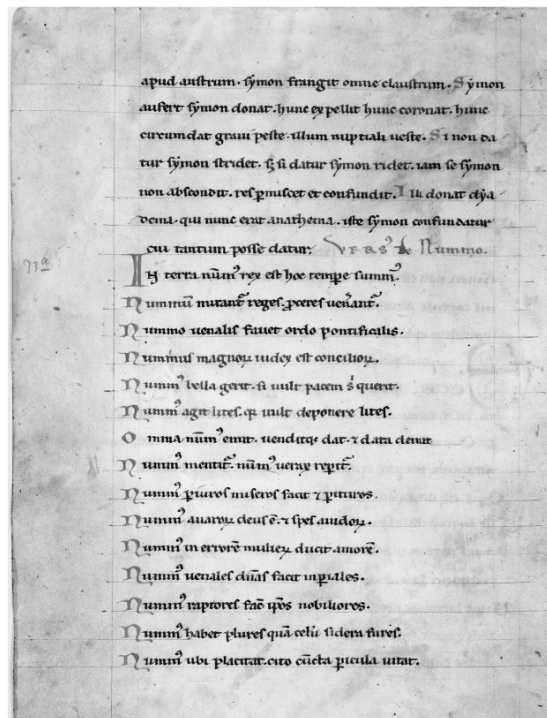 apud austrum. symon frangit omne claustrum. Symon
aufert symon donat. hunc expellit hunc coronat. hunc
circumdat graui peste. illum nuptiali ueste. Si non da
tur symon stridet. sꝫ si datur symon ridet. iam se symon
non abscondit. res ꝑmiscet et confundit. Illi donat dẏa
dema. qui nunc erat anathema. iste symon confundatur
cui tantum posse datur. Nummo.
73a
IN terra nũmꝰ rex est hoc tempꝛe summꝰ.
Nummũ mirantᷣ reges. ꝓceres uen̾antᷣ.
Nummo uenalis fauet ordo pontificalis.
Nummus magnoꝝ iudex est concilioꝝ.
Nummꝰ bella gerit. si uult pacem s̾ querit.
Nummꝰ agit lites. uult deponere lites.
Omnia nũmꝰ emit. uenditqꝫ dat. ⁊ data demit
Nummꝰ mentitᷣ. nũmꝰ uerax repitᷣ.
Nummꝰ ꝑiuros miseros facit ⁊ ꝑituros.
Nummꝰ auaroꝝ deus ẽ. ⁊ spes auidoꝝ.
Nummꝰ in errorẽ mulieꝝ ducit amorẽ.
Nummꝰ uenales dñas facit inꝑiales.
Nummꝰ raptores fac̃ ip̃os nobiliores.
Nummꝰ habet plures quã celũ sidera fures.
Nummꝰ ubi placitat. cito cũcta ꝑicula uitat.